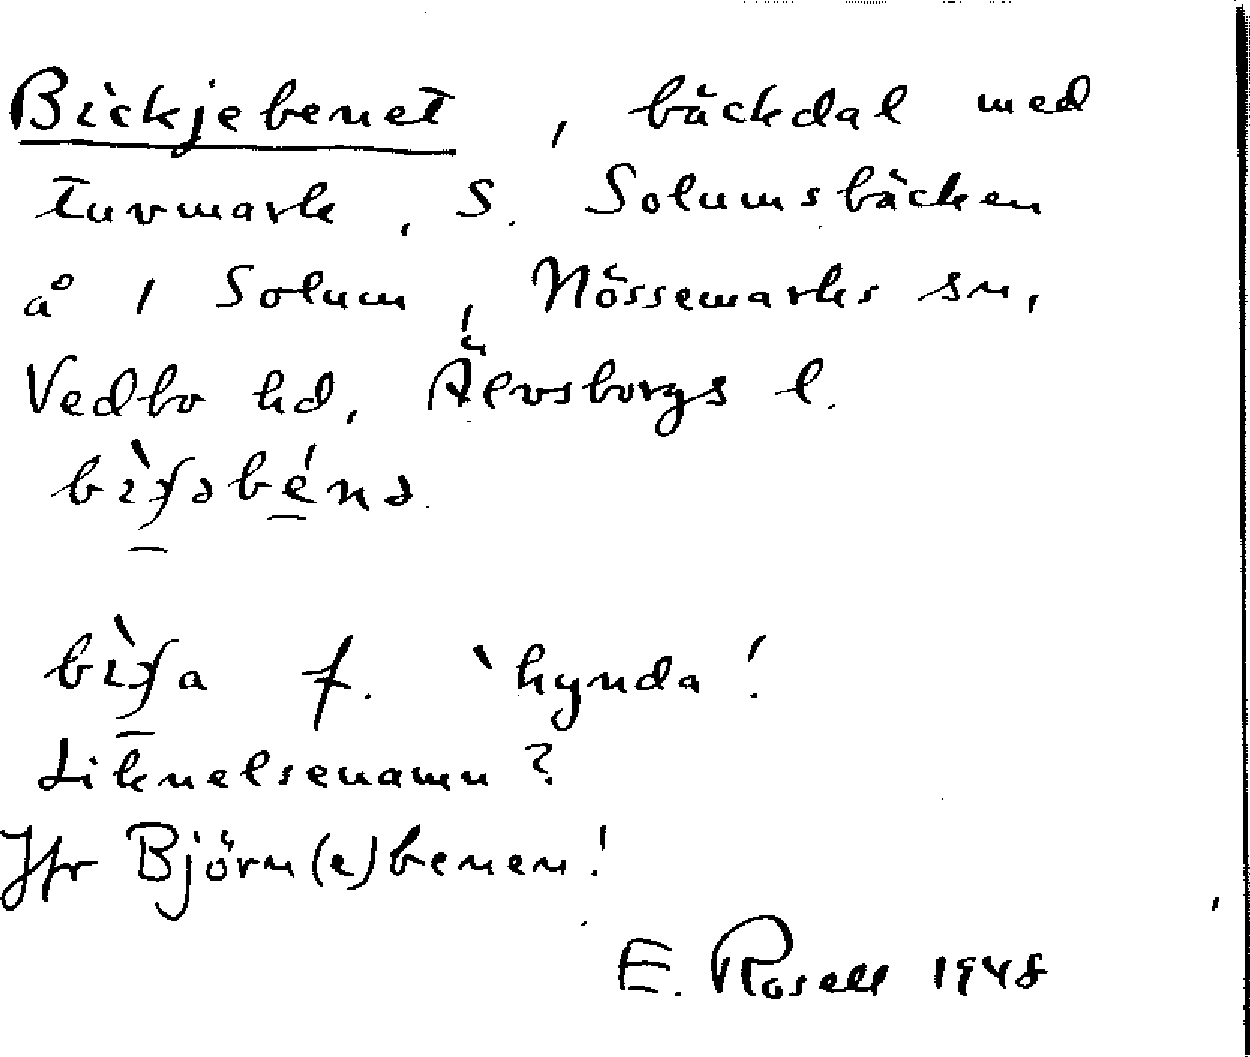 Bickjebenet, bäckdal med
turmark, S. Solumsbäcken
å 1 Solum, Nössemarks sn,
Vedbo hd, Älvsborgs l.
f. 'hynda'.
Liknelsenamn?
Jfr Björn(e)benen!
E. Rosell 1948